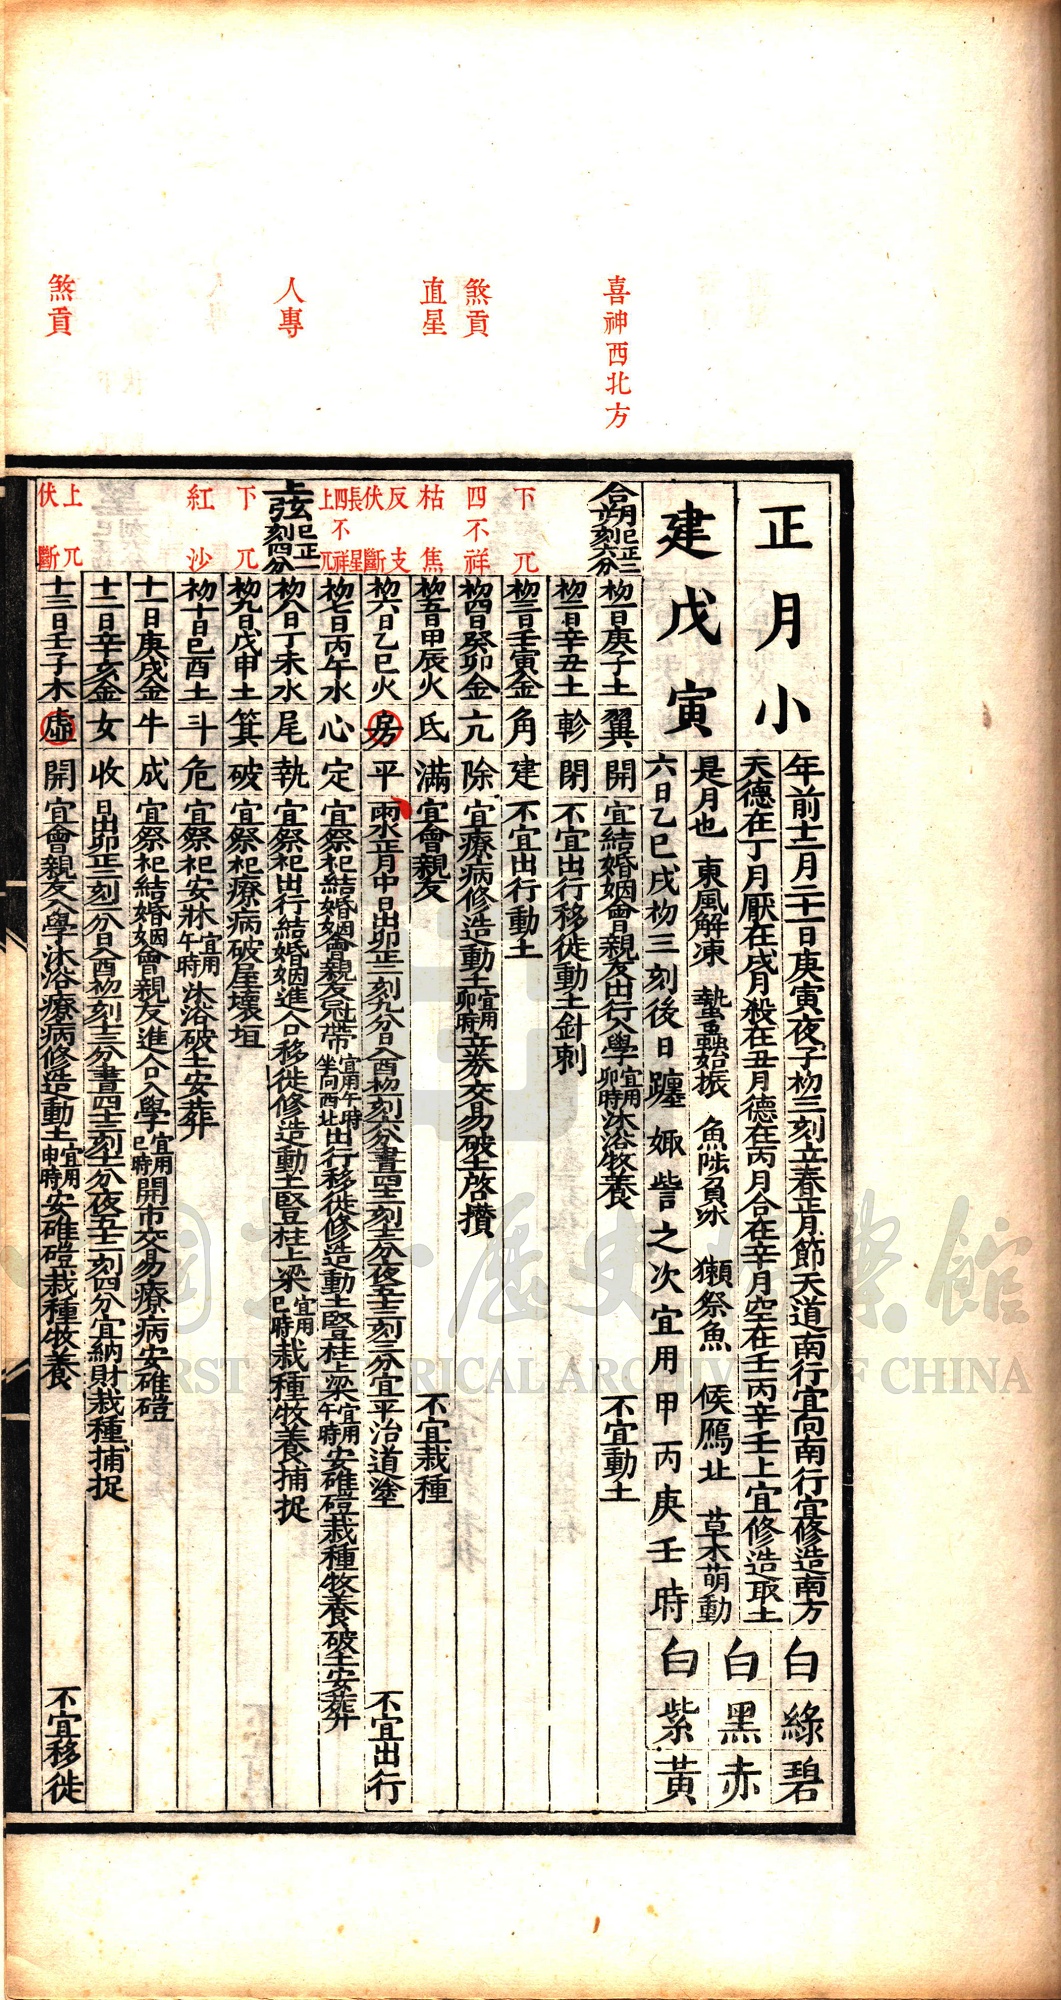 喜神西北方
煞貢
直星
人專
煞貢
正月小
建戊寅
年前十二月二十一日庚寅夜子初三刻立春正月節天道南行宜向南行宜修造南方
天德在丁月厭在戌月殺在丑月德在丙月合在辛月空在壬丙辛壬上宜修造取土
是月也 東風解凍 蟄蟲始振 魚陟負冰 獺祭魚 候鴈北 草木萌動
六日乙巳戌初三刻後日躔娵訾之次宜用甲丙庚壬時
白 綠 碧
白 黑 赤
白 紫 黃
合朔巳正三刻六分 初一日庚子土 翼 開 宜結婚姻會親友出行入學宜用卯時沐浴牧養 不宜動土
初二日辛丑土 軫 閉 不宜出行移徙動土針刺
下兀 初三日壬寅金 角 建 不宜出行動土
四不祥 初四日癸卯金 亢 除 宜療病修造動土宜用卯時立券交易破土啓攢
枯焦 初五日甲辰火 氐 滿 宜會親友 不宜栽種
反支 伏斷 初六日乙巳火 房 平 雨水正月中日出卯正二刻九分日入酉初一刻六分晝四十二刻十二分夜五十三刻三分宜平治道塗 不宜出行
長星 四不祥 上兀 初七日丙午水 心 定 宜祭祀結婚姻會親友冠帶宜用午時坐向西北出行移徙修造動土豎柱上梁宜用午時安碓磑栽種牧養破土安葬
上弦巳正一刻四分 初八日丁未水 尾 執 宜祭祀出行結婚姻進人口移徙修造動土豎柱上梁宜用巳時栽種牧養捕捉
下兀 初九日戊申土 箕 破 宜祭祀療病破屋壞垣
紅沙 初十日己酉土 斗 危 宜祭祀安牀宜用午時沐浴破土安葬
十一日庚戌金 牛 成 宜祭祀結婚姻會親友進人口入學宜用巳時開市交易療病安碓磑
十二日辛亥金 女 收 日出卯正二刻二分日入酉初一刻十三分晝四十三刻十一分夜五十二刻四分宜納財栽種捕捉
上兀 伏斷 十三日壬子木 虛 開 宜會親友入學沐浴療病修造動土宜用申時安碓磑栽種牧養 不宜移徙